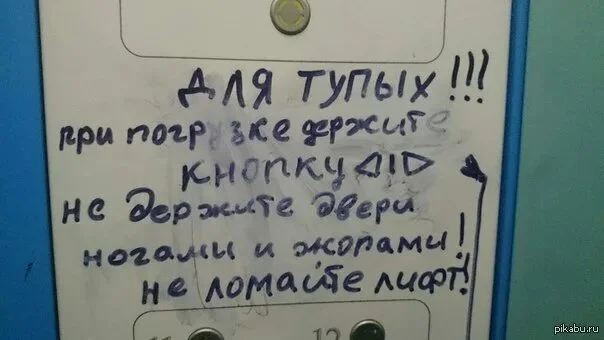 ДЛЯ ТУПЫХ!!!
при погрузке держите
КНОПКУ ◁I▷
не держите двери
ногами и жопами!
не ломайте лифт!
11 12
pikabu.ru